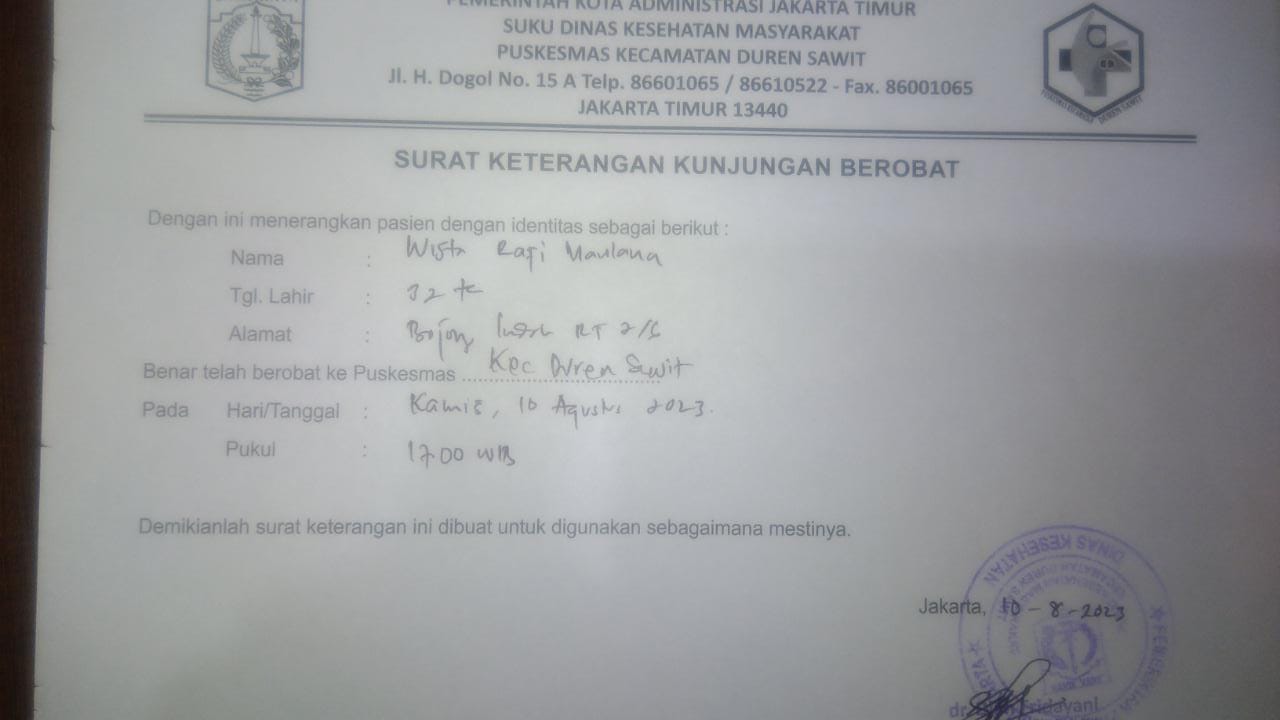 PEMERINTAH KOTA ADMINISTRASI JAKARTA TIMUR
SUKU DINAS KESEHATAN MASYARAKAT
PUSKESMAS KECAMATAN DUREN SAWIT
Jl. H. Dogol No. 15 A Telp. 86601065 / 86610522 - Fax. 86001065
JAKARTA TIMUR 13440
DUREN SAWIT
SURAT KETERANGAN KUNJUNGAN BEROBAT
Dengan ini menerangkan pasien dengan identitas sebagai berikut :
Nama : Rafi Maulana
Tgl. Lahir : 32
Alamat : Bojong RT 2/6
Benar telah berobat ke Puskesmas Kec Duren Sawit
Pada Hari/Tanggal : Kamis, 10 Agustus 2023.
Pukul : 1700 WIB
Demikianlah surat keterangan ini dibuat untuk digunakan sebagaimana mestinya.
Jakarta, 10 - 8 - 2023
DINAS KESEHATAN
dr.